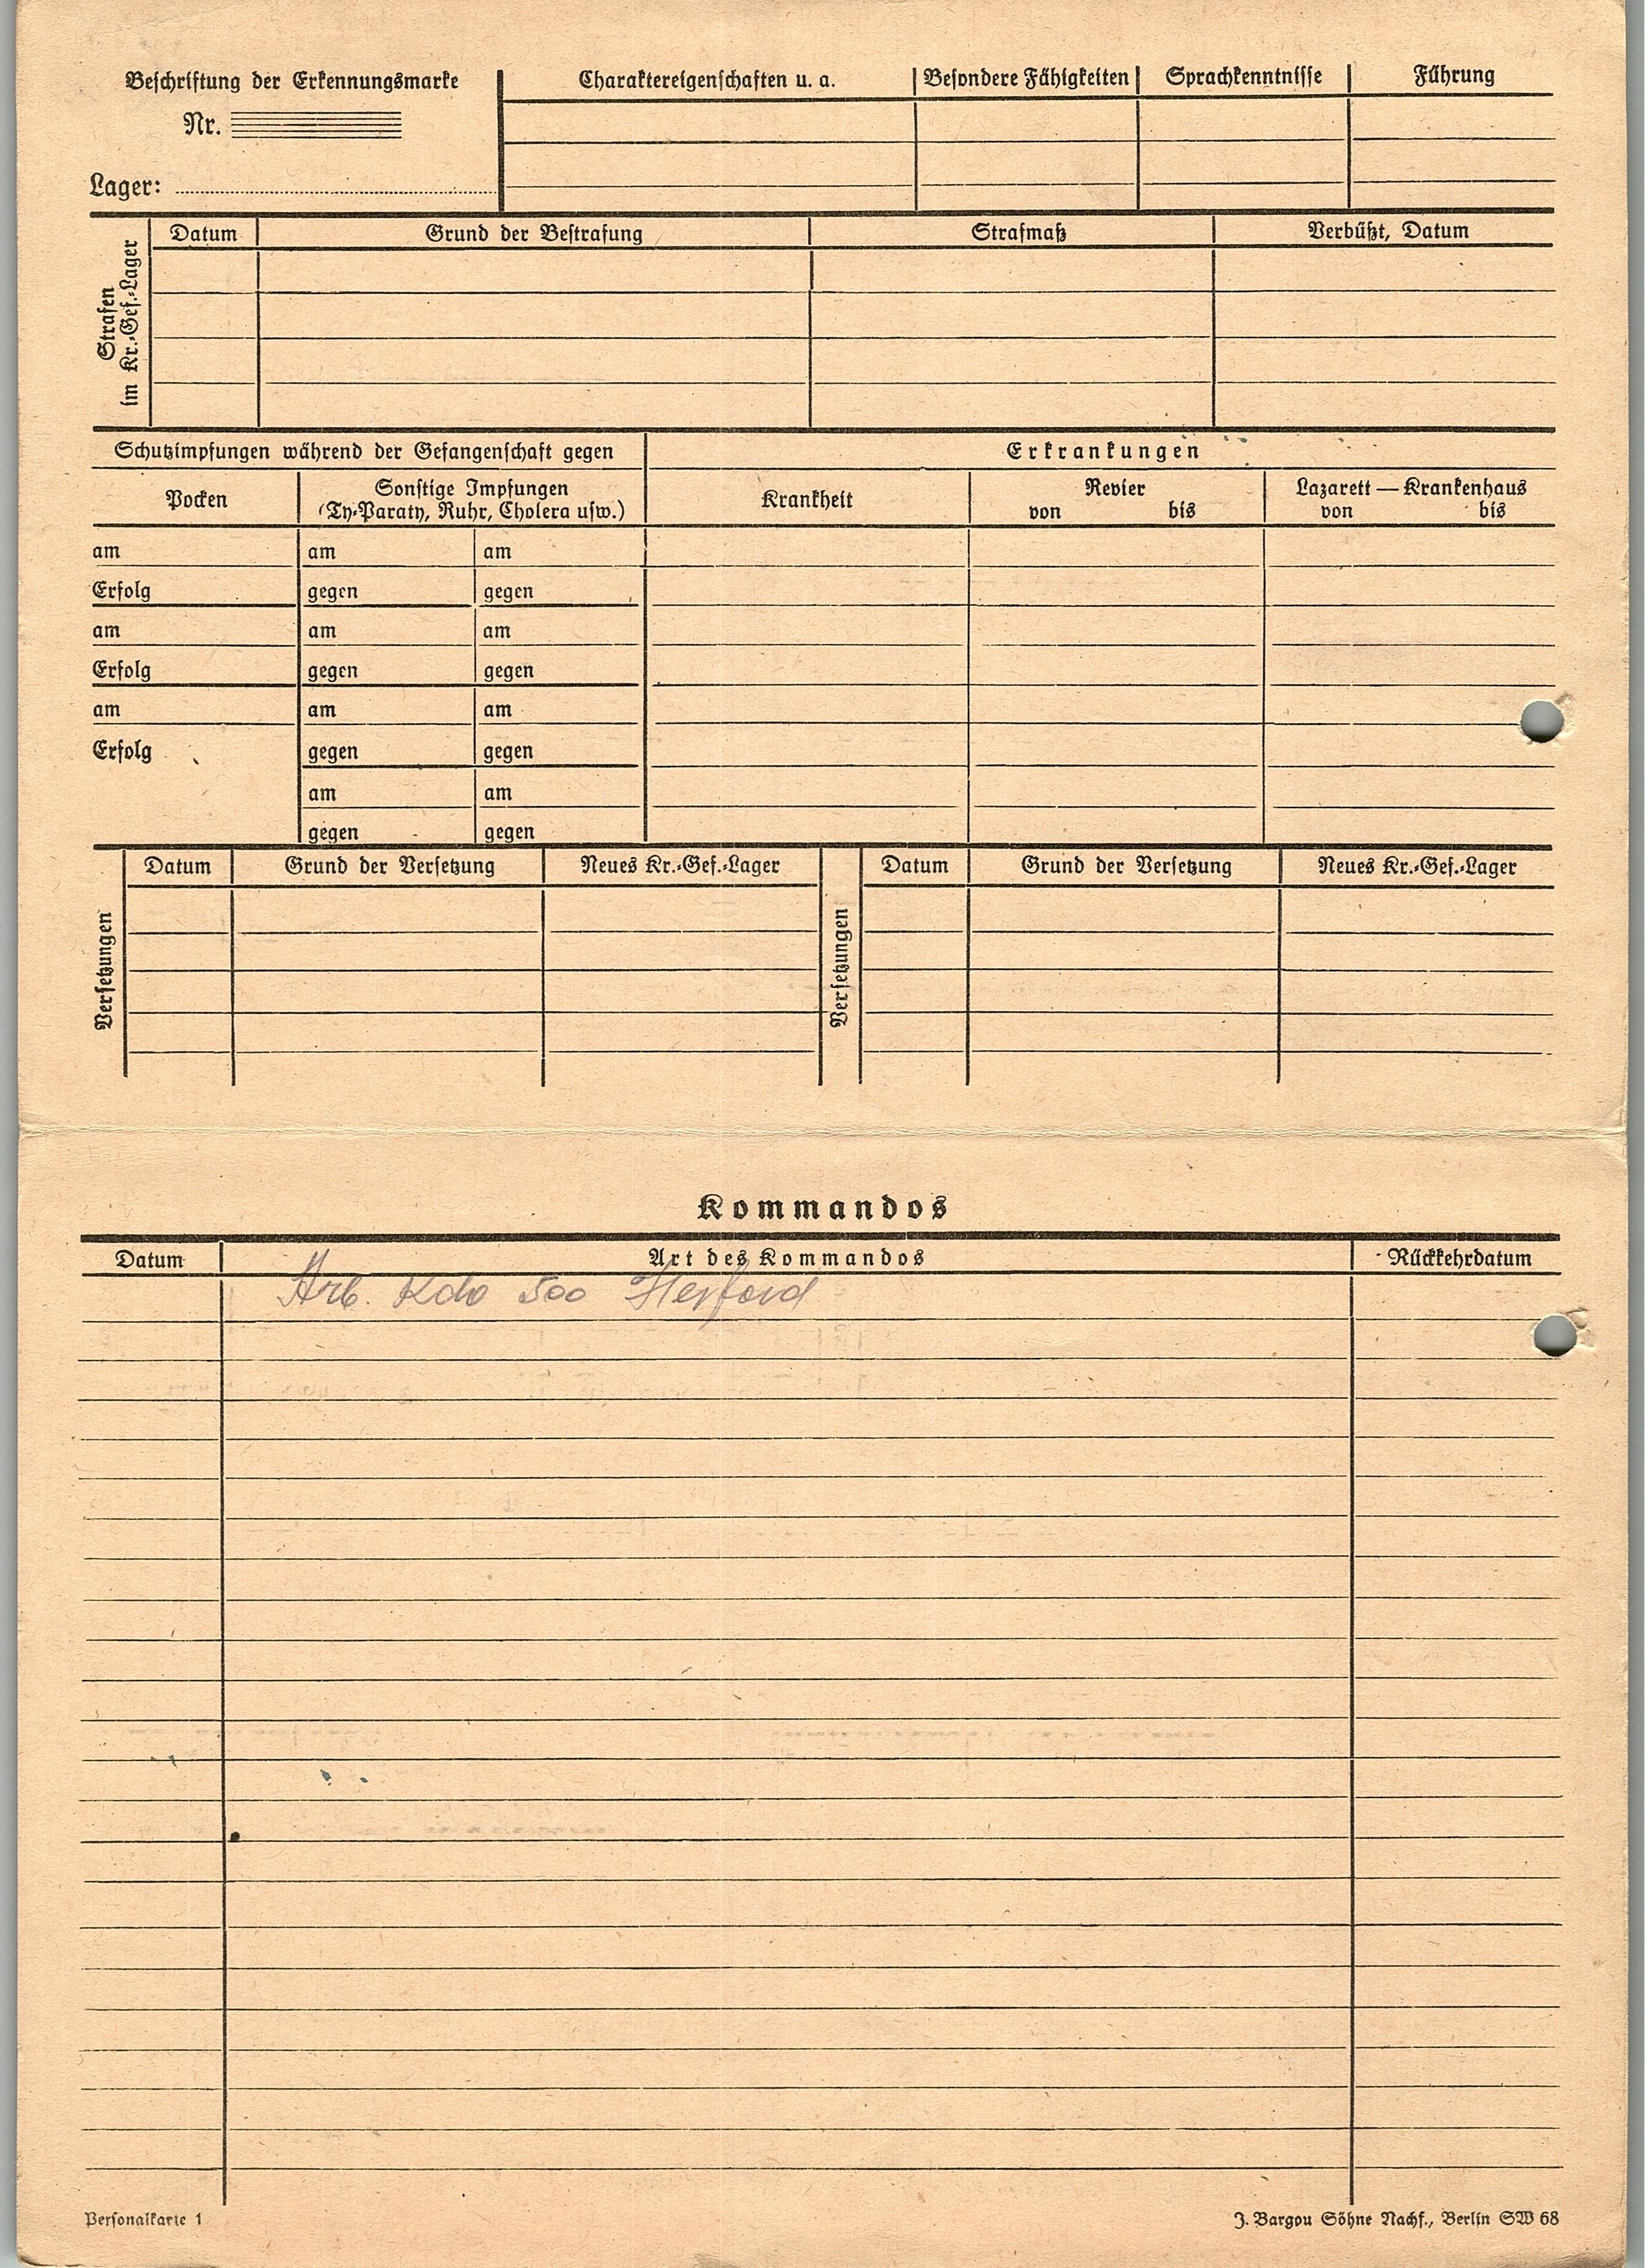 Beschriftung der Erkennungsmarke
Nr.
Lager:
Charaktereigenschaften u. a. Besondere Fähigkeiten Sprachkenntnisse Führung
Strafen
im Kr.-Gef.-Lager
Datum Grund der Bestrafung Strafmaß Verbüßt, Datum
Schutzimpfungen während der Gefangenschaft gegen
Pocken
Sonstige Impfungen
(Ty-Paraty, Ruhr, Cholera usw.)
Erkrankungen
Krankheit
Revier
von bis
Lazarett — Krankenhaus
von bis
am am am
Erfolg gegen gegen
am am am
Erfolg gegen gegen
am am am
Erfolg gegen gegen
am am
gegen gegen
Versetzungen
Datum Grund der Versetzung Neues Kr.-Gef.-Lager
Versetzungen
Datum Grund der Versetzung Neues Kr.-Gef.-Lager
Kommandos
Datum Art des Kommandos Rückkehrdatum
Arb. Kdo 500 Herford
Personalkarte 1
J. Bargou Söhne Nachf., Berlin SW 68